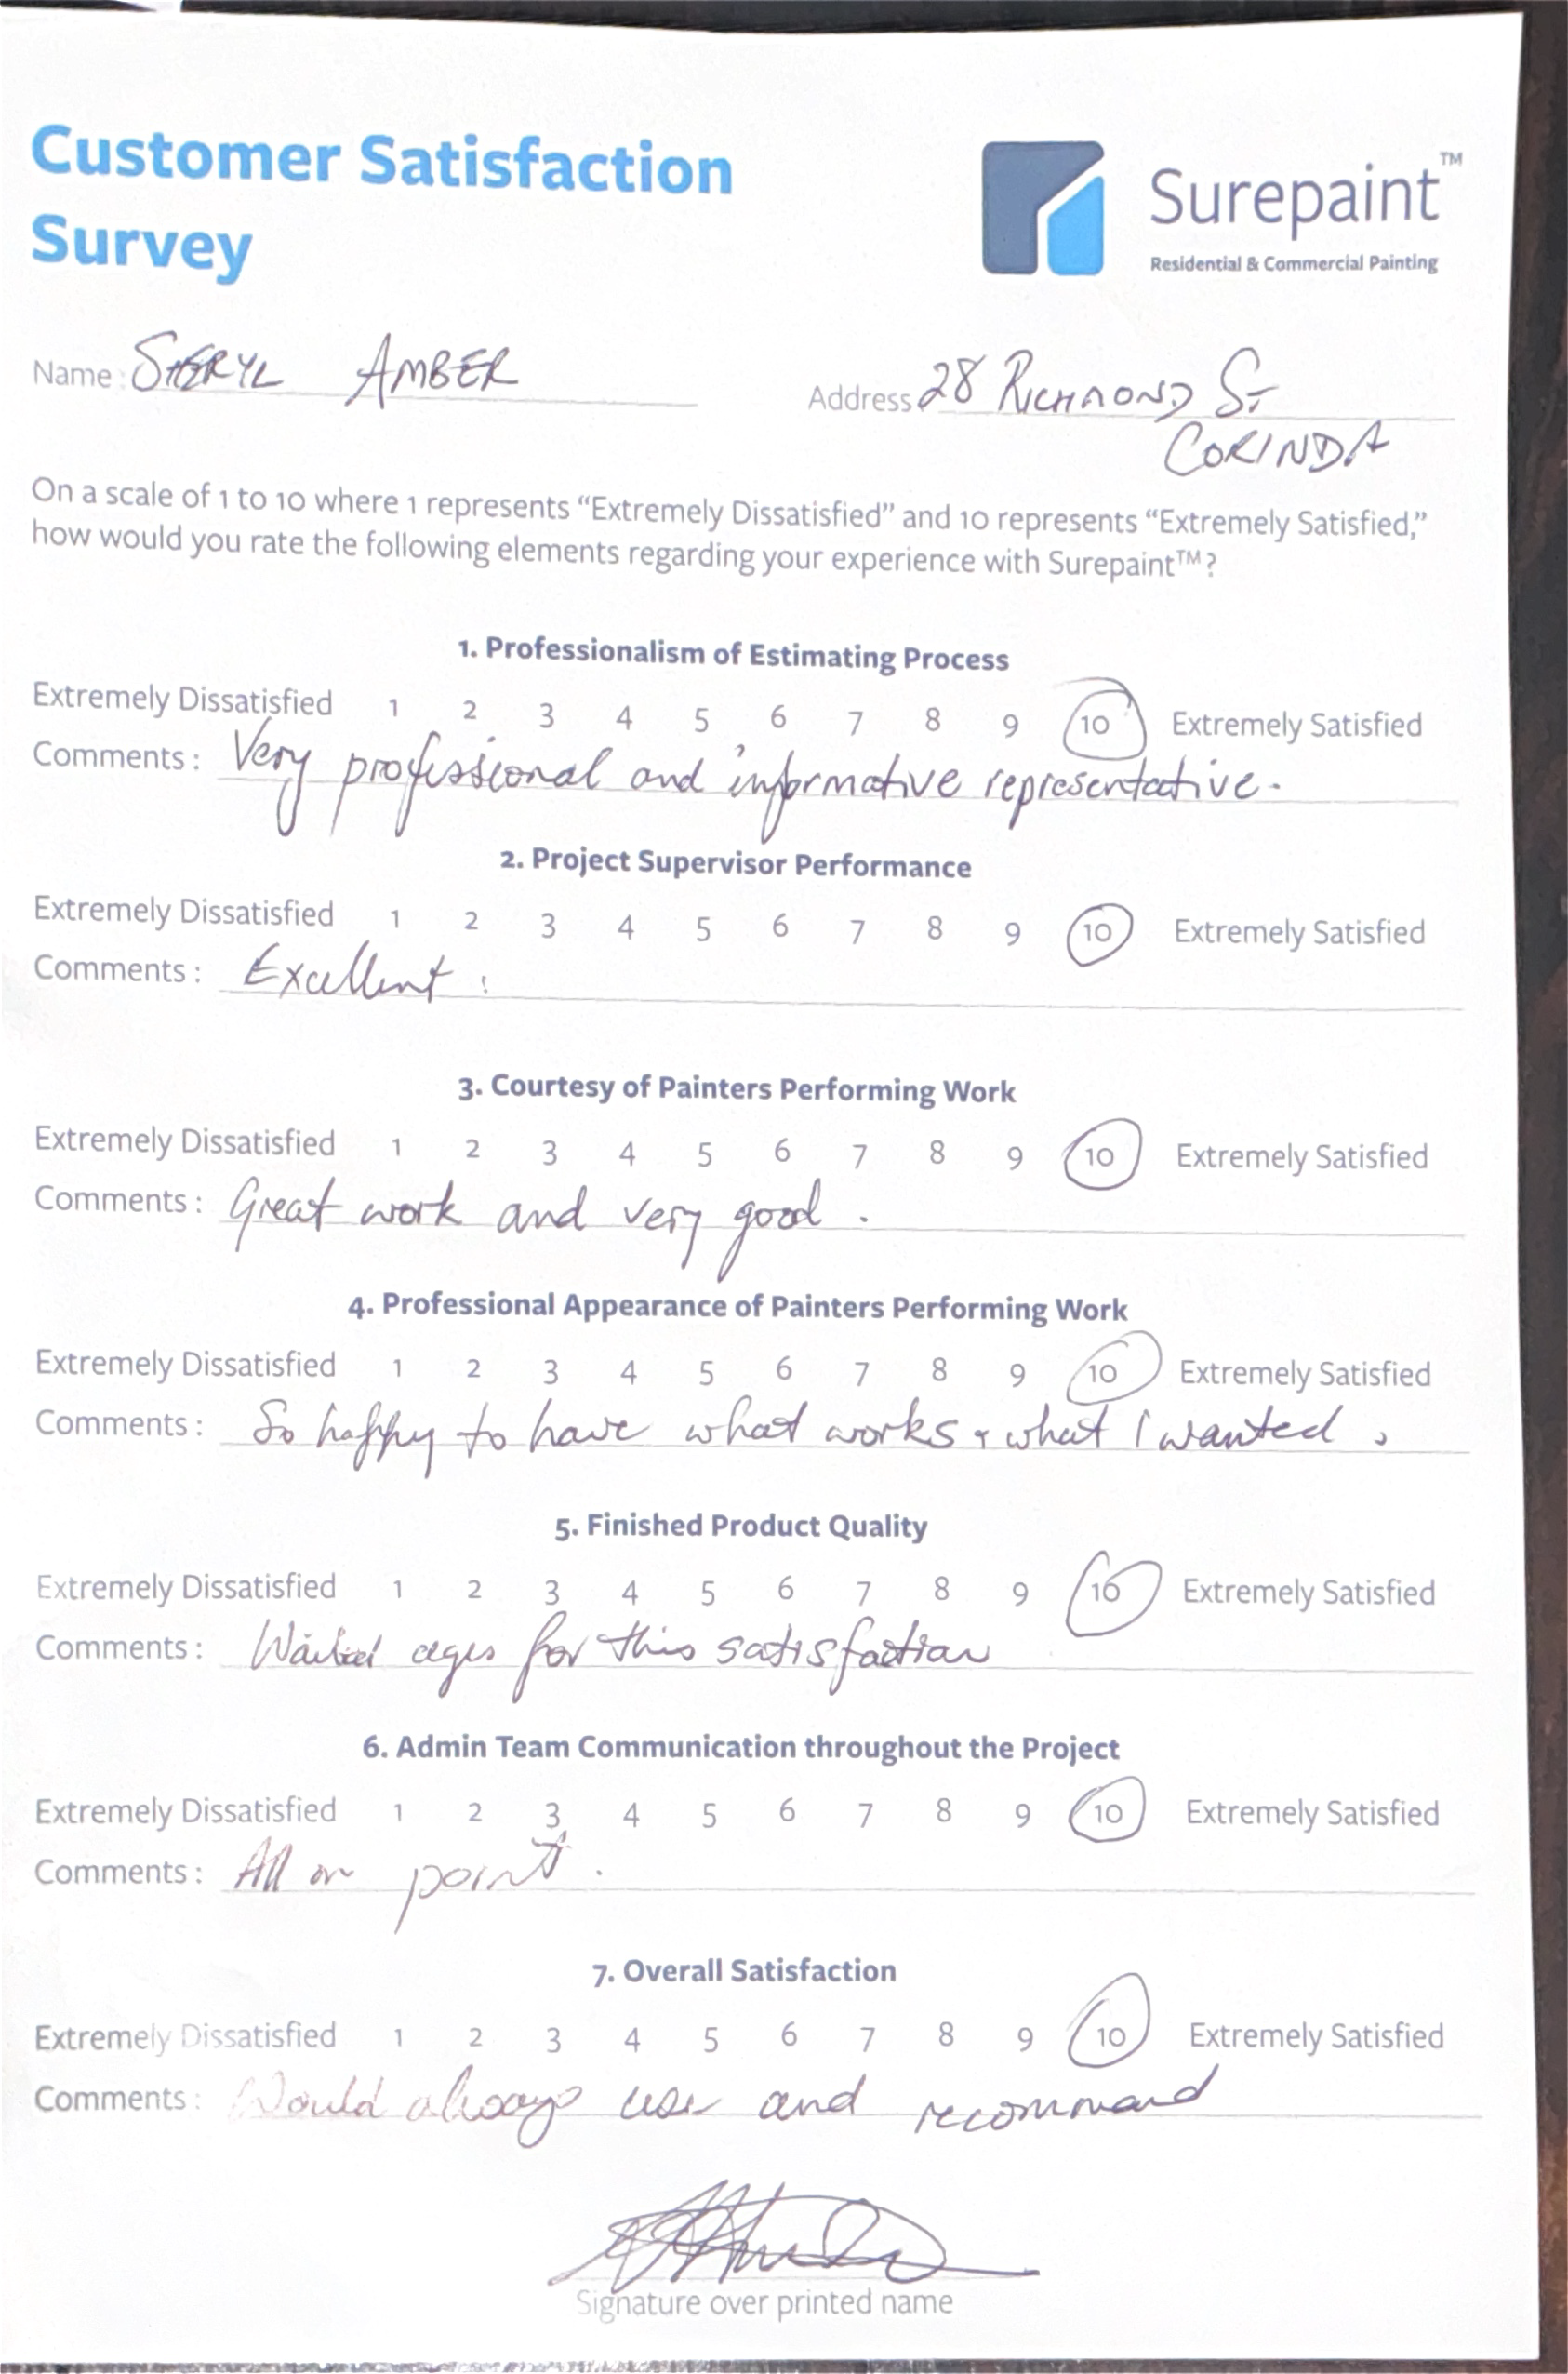 Customer Satisfaction
Survey
Surepaint™
Residential & Commercial Painting
Name: SHERYL AMBER
Address 28 RICHMOND ST
CORINDA
On a scale of 1 to 10 where 1 represents “Extremely Dissatisfied” and 10 represents “Extremely Satisfied,”
how would you rate the following elements regarding your experience with Surepaint™?
1. Professionalism of Estimating Process
Extremely Dissatisfied 1 2 3 4 5 6 7 8 9 10 Extremely Satisfied
Comments: Very professional and informative representative.
2. Project Supervisor Performance
Extremely Dissatisfied 1 2 3 4 5 6 7 8 9 10 Extremely Satisfied
Comments: Excellent!
3. Courtesy of Painters Performing Work
Extremely Dissatisfied 1 2 3 4 5 6 7 8 9 10 Extremely Satisfied
Comments: Great work and very good.
4. Professional Appearance of Painters Performing Work
Extremely Dissatisfied 1 2 3 4 5 6 7 8 9 10 Extremely Satisfied
Comments: So happy to have what works & what I wanted.
5. Finished Product Quality
Extremely Dissatisfied 1 2 3 4 5 6 7 8 9 10 Extremely Satisfied
Comments: Waited ages for this satisfaction
6. Admin Team Communication throughout the Project
Extremely Dissatisfied 1 2 3 4 5 6 7 8 9 10 Extremely Satisfied
Comments: All on point.
7. Overall Satisfaction
Extremely Dissatisfied 1 2 3 4 5 6 7 8 9 10 Extremely Satisfied
Comments: Would always use and recommand
Signature over printed name